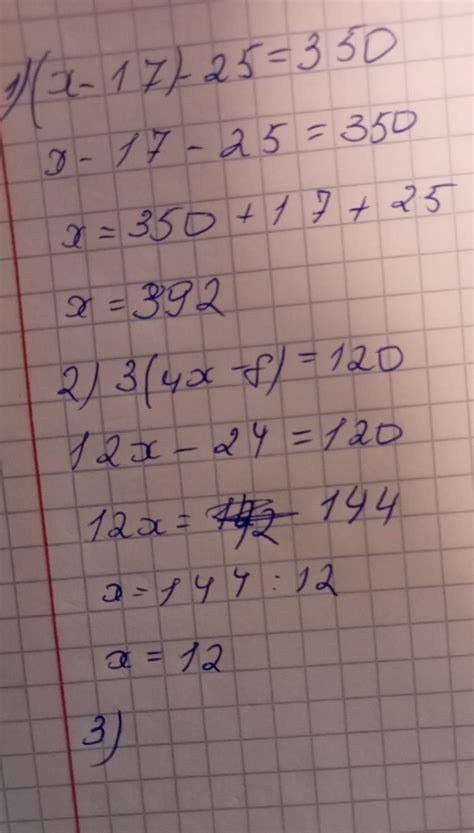 1)(x-17)-25=350
x-17-25=350
x=350+17+25
x=392
2) 3(4x-8)=120
12x-24=120
12x= 144
x=144:12
x=12
3)